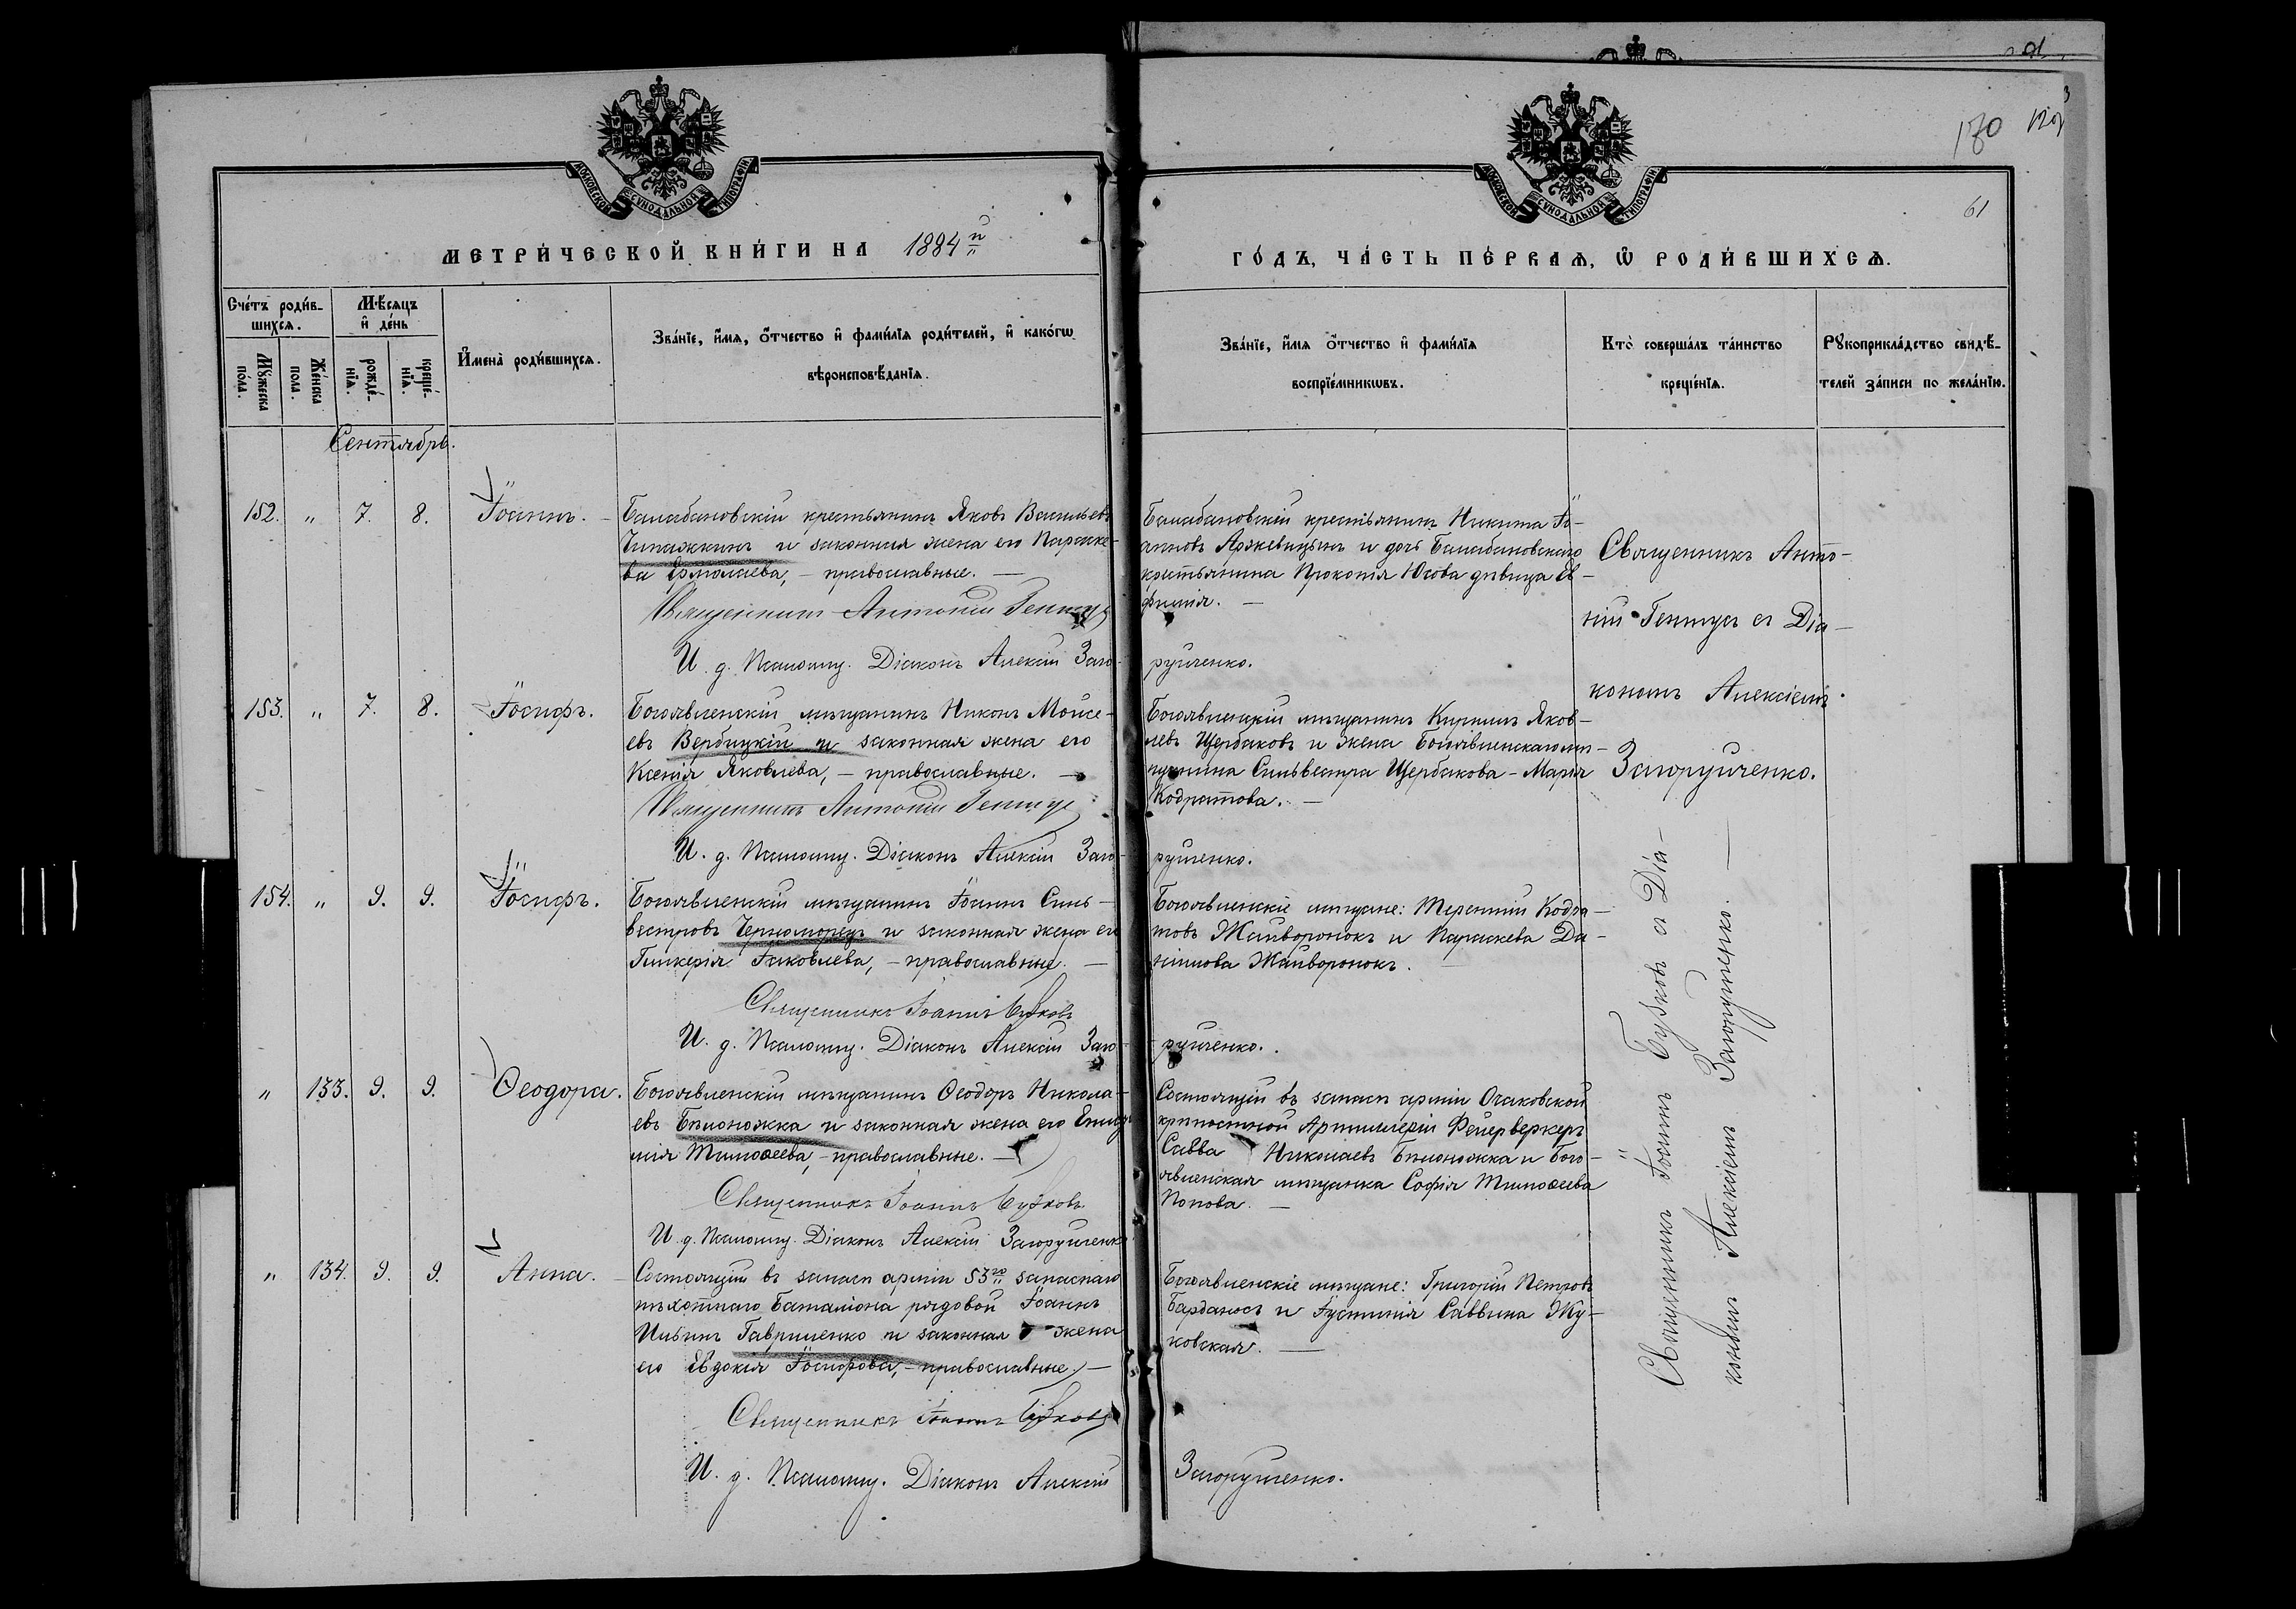 91
180
129
3
МОСКОВСКОЙ СУНОДАЛЬНОЙ ТИПОГРАФІИ
МОСКОВСКОЙ СУНОДАЛЬНОЙ ТИПОГРАФІИ
61
МЕТРИ́ЧЕСКОЙ КНИ́ГИ НА 1884й
ГО́ДЪ, ЧА́СТЬ ПЕ́РВАѦ, Ѡ РОДИ́ВШИХСѦ.
Сче́тъ роди́в-
шихсѧ.
Мѣ́сѧцъ
и҆ де́нь
Мꙋ́жеска
по́ла.
Же́нска
пола.
рожде́-
нїѧ.
креще́-
нїѧ.
И҆мена̀ роди́вшихсѧ.
Зва́нїе, и҆́мѧ, ѻ҆́тчество и҆ фами́лїѧ роди́телей, и҆ како́гѡ
вѣроисповѣ́данїѧ.
Зва́нїе, и҆́мѧ ѻ҆́тчество и҆ фами́лїѧ
воспрїе́мникѡвъ.
Кто̀ совершалъ та́инство
креще́нїѧ.
Рꙋкоприкла́дство свидѣ́-
телей за́писи по жела́нїю.
Сентябрь.
152. " 7. 8. Іоаннъ. Балабановскій крестьянинъ Яковъ Васильевъ
Чипажкинъ и законная жена его Параске-
ва Ермолаева, – православные. —
Священникъ Антоній Гентуе
И. д. Псаломщ. Діаконъ Алексій Заго-
руйченко.
Балабановскій крестьянинъ Никита Іо-
анновъ Аржевицынъ и дочь Балабановскаго
крестьянина Прокопія Юсова дѣвица Ев-
фимія. —
Священникъ Анто-
ній Гентуе съ Діа-
кономъ Алексіемъ
Загоруйченко.
153. " 7. 8. Іосифъ. Богоявленскій мѣщанинъ Никонъ Мойсе-
евъ Вербицкій и законная жена его
Ксенія Яковлева, – православные. —
Священникъ Антоній Гентуе
И. д. Псаломщ. Діаконъ Алексій Заго-
руйченко.
Богоявленскій мѣщанинъ Кириллъ Яков-
левъ Щербаковъ и жена Богоявленскаго мѣ-
щанина Сильвестра Щербакова – Марія
Кодратова. —
154. " 9. 9. Іосифъ. Богоявленскій мѣщанинъ Іоаннъ Силь-
вестровъ Черноморецъ и законная жена его
Гликерія Іаковлева, – православные. —
Священникъ Іоаннъ Бужковъ
И. д. Псаломщ. Діаконъ Алексій Заго-
руйченко.
Богоявленскіе мѣщане: Терентій Кодра-
товъ Жайворонокъ и Параскева Да-
ніилова Жайворонокъ.
Священникъ Іоаннъ Бужковъ съ Діа-
кономъ Алексіемъ Загоруйченко. —
" 133. 9. 9. Ѳеодора. Богоявленскій мѣщанинъ Ѳеодоръ Никола-
евъ Бѣлоножка и законная жена его
Тимоѳеева, – православные. —
Священникъ Іоаннъ Бужковъ.
И. д. Псаломщ. Діаконъ Алексій Загоруйченко
Состоящій въ запасѣ арміи Очаковской
крѣпостной Артиллеріи Фейерверкеръ
Савва Николаевъ Бѣлоножка и Бого-
явленская мѣщанка Софія Тимоѳеева
Попова. —
" 134. 9. 9. Анна. Состоящій въ запасѣ арміи 53го запаснаго
пѣхотнаго Баталіона рядовой Іоаннъ
Ильинъ Гавриленко и законная жена
его Евдокія Іосифова, – православные. —
Священникъ Іоаннъ Бужковъ
И. д. Псаломщ. Діаконъ Алексій
Загоруйченко.
Богоявленскіе мѣщане: Григорій Петровъ
Барданосъ и Іустинія Саввина Жу-
ковская. —